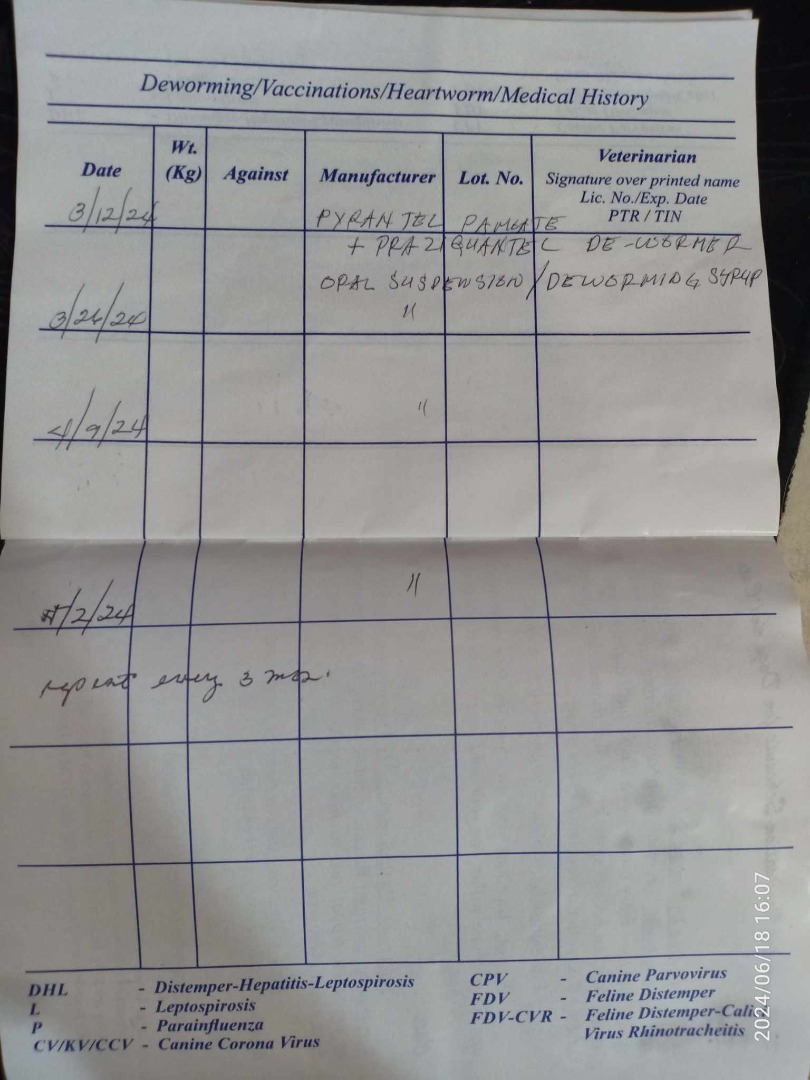 Deworming/Vaccinations/Heartworm/Medical History
Date
Wt.
(Kg)
Against
Manufacturer
Lot. No.
Veterinarian
Signature over printed name
Lic. No./Exp. Date
PTR / TIN
3/12/24
PYRANTEL PAMOATE
+ PRAZIQUANTEL DE-WORMER
ORAL SUSPENSION/DEWORMING SYRUP
3/26/24 "
4/9/24 "
/2/24 "
repeat every 3 mos.
DHL - Distemper-Hepatitis-Leptospirosis
L - Leptospirosis
P - Parainfluenza
CV/KV/CCV - Canine Corona Virus
CPV - Canine Parvovirus
FDV - Feline Distemper
FDV-CVR - Feline Distemper-Calici
Virus Rhinotracheitis
2024/06/18 16:07